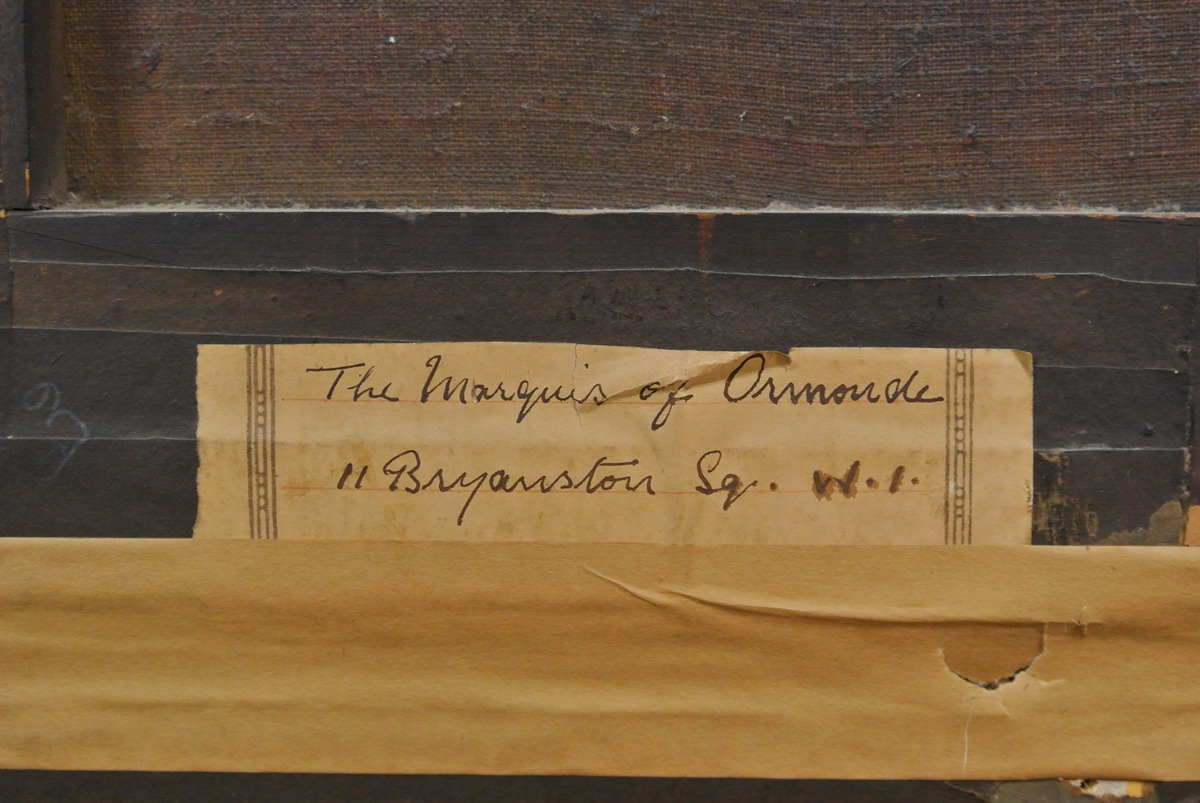 The Marquis of Ormonde
11 Bryanston Sq. W.1.